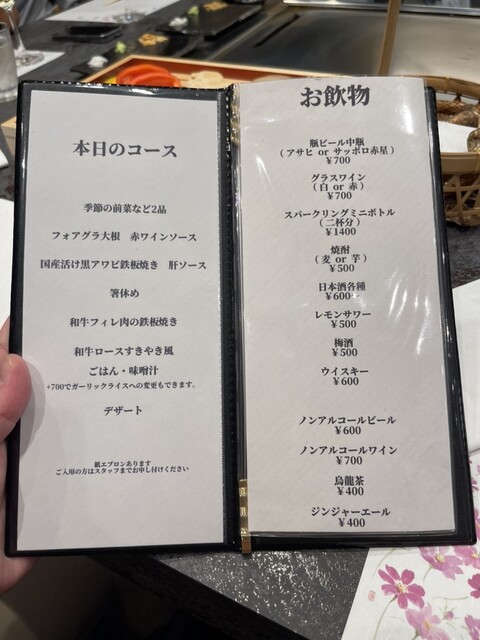 本日のコース
季節の前菜など2品
フォアグラ大根　赤ワインソース
国産活け黒アワビ鉄板焼き　肝ソース
箸休め
和牛フィレ肉の鉄板焼き
和牛ロースすきやき風
ごはん・味噌汁
+700でガーリックライスへの変更もできます。
デザート
紙エプロンあります
ご入用の方はスタッフまでお申し付けください
お飲物
瓶ビール中瓶
(アサヒ or サッポロ赤星)
¥700
グラスワイン
(白 or 赤)
¥700
スパークリングミニボトル
(二杯分)
¥1400
焼酎
(麦 or 芋)
¥500
日本酒各種
¥600
レモンサワー
¥500
梅酒
¥500
ウイスキー
¥600
ノンアルコールビール
¥600
ノンアルコールワイン
¥700
烏龍茶
¥400
ジンジャーエール
¥400